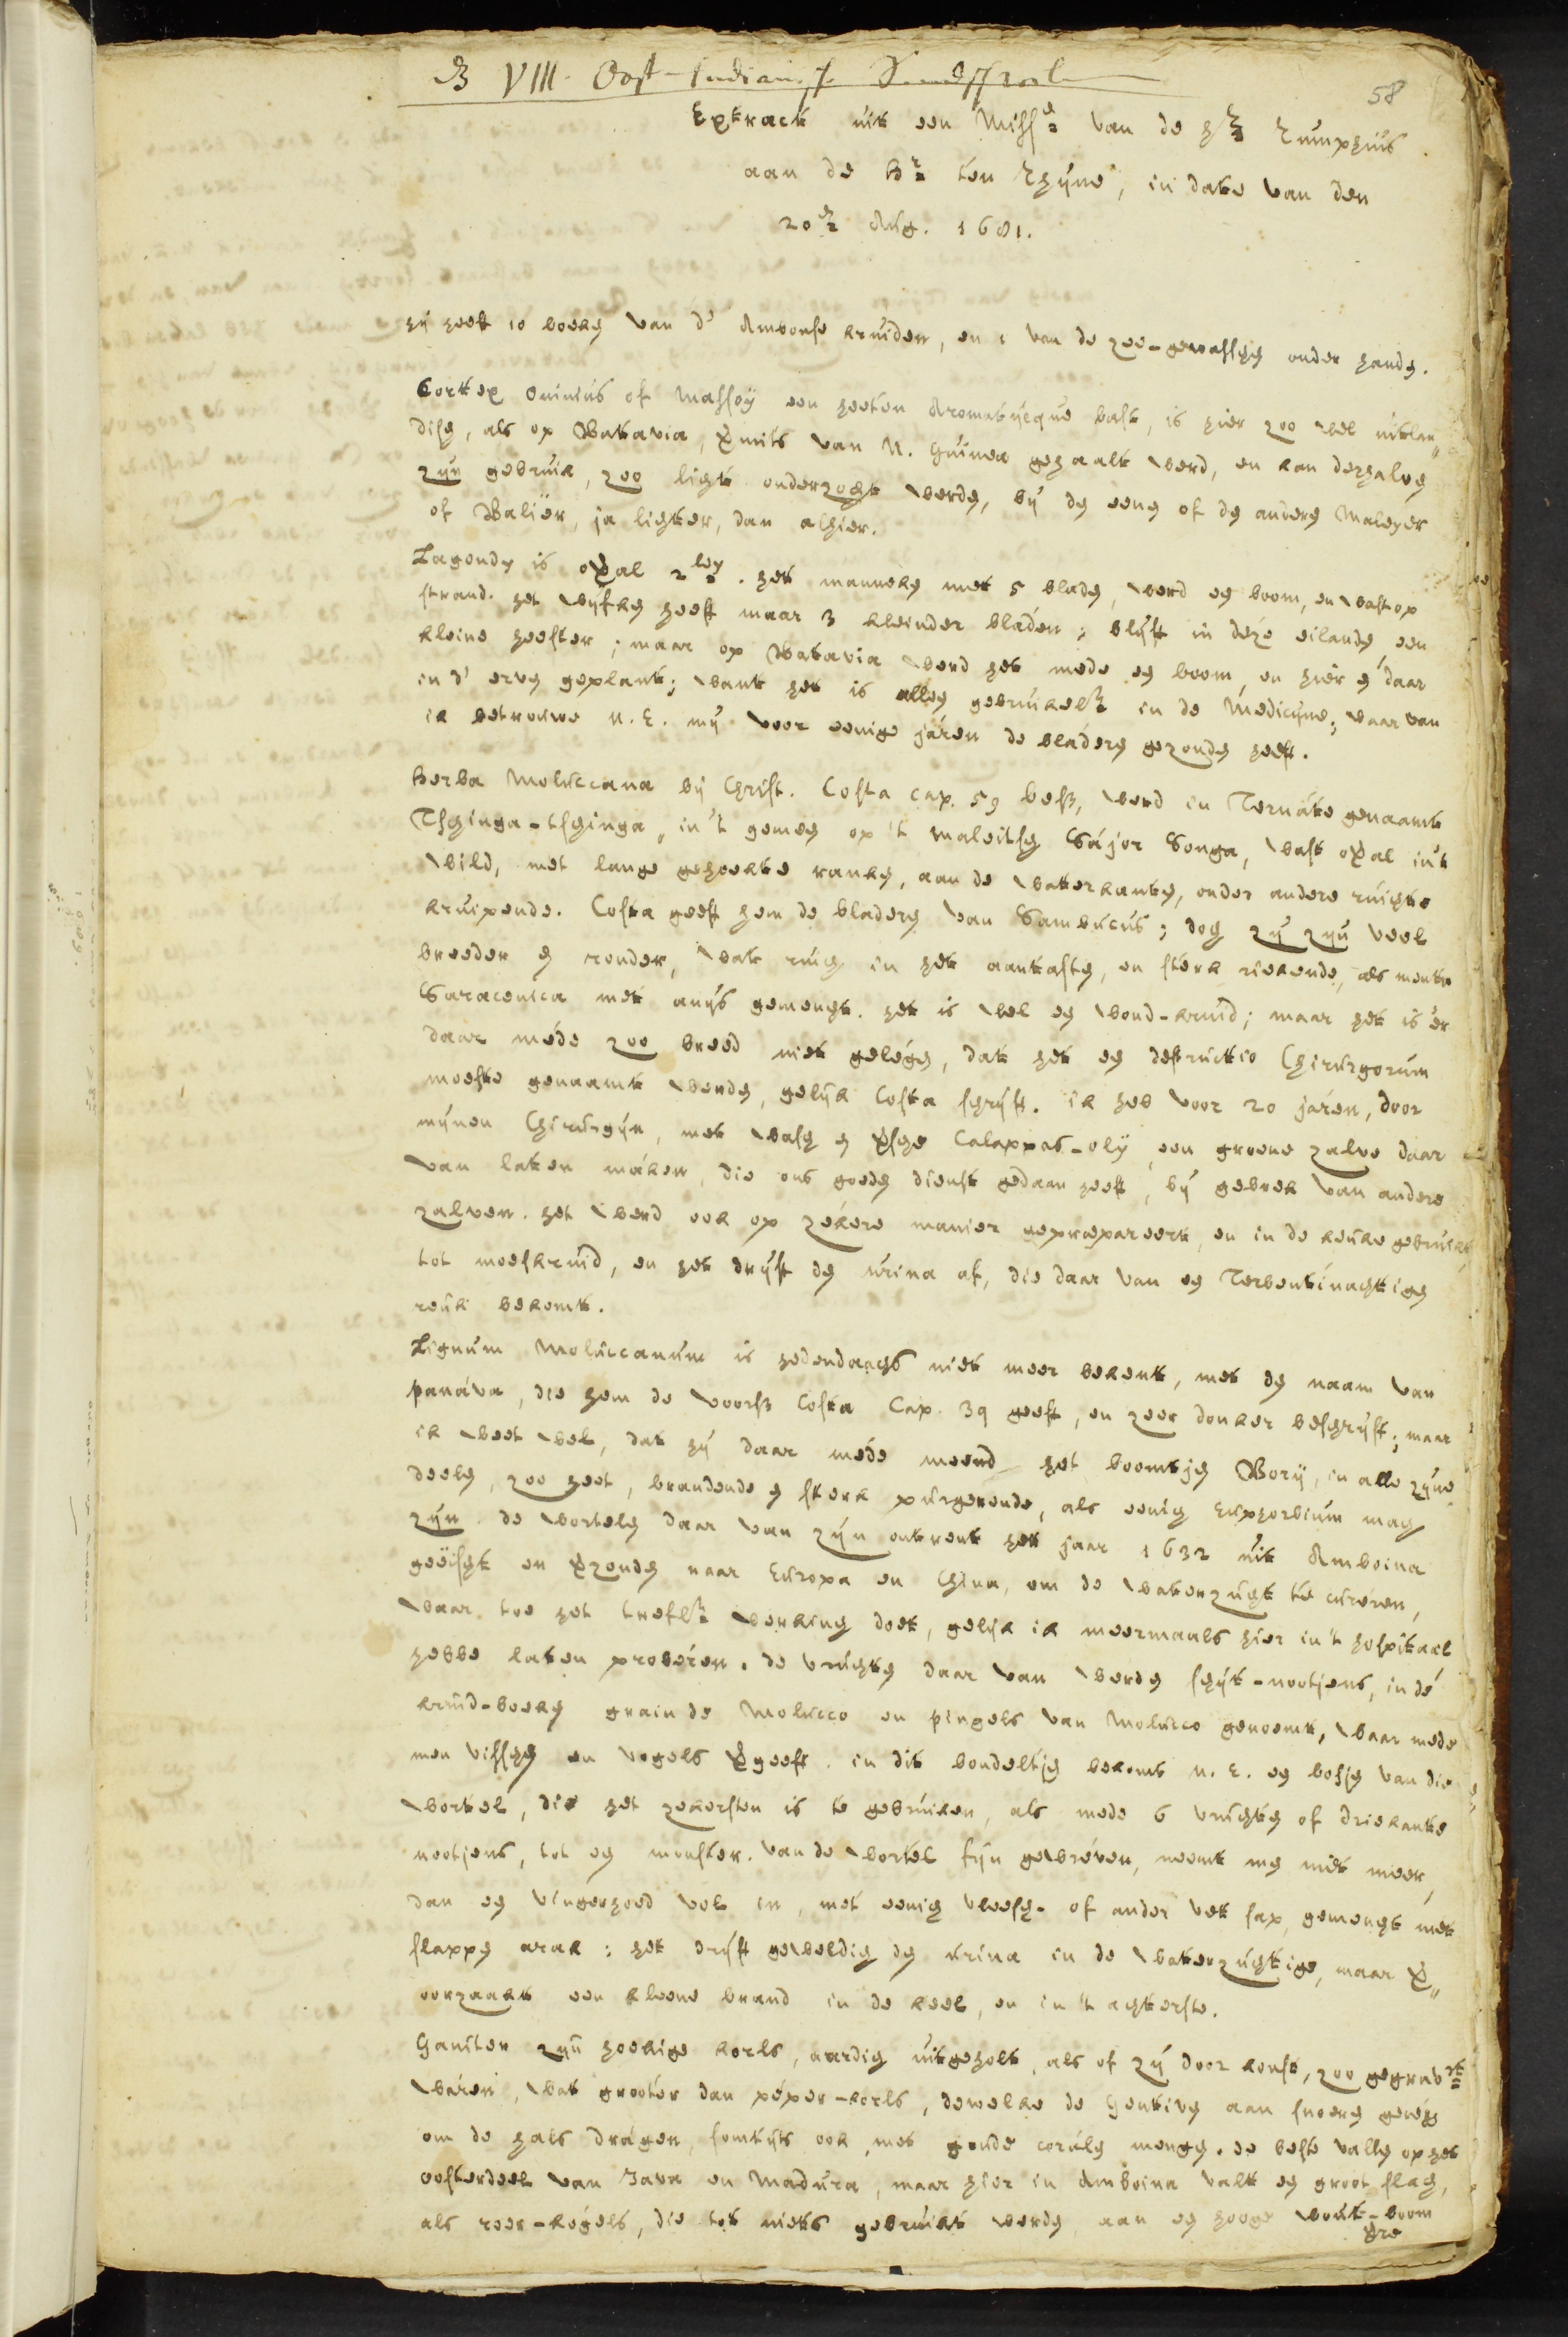 VIII. Oost-Indianisch
58
Extrackt uit een Miss.e van de Hr. Rumphius
aan de Hr. ten Rhijne, in date van den
20e Aug. 1681.
hij heeft 10 boeken van d' Ambonse kruiden, en 1 van de zee-gewasschen onder handen.
Cortex Oninius of Massoij een heeten Aromatijcque bast, is hier zoo wel uitlan„
disch, als op Batavia, vermits van N. Guinea gehaalt werd, en kan derhalven
zijn gebruik, zoo licht onderzocht werden, bij den eenen of den anderen Maleyer
of Baliër, ja lichter, dan alhier.
Lagondy is overal 2ley. het manneken met 5 bladen, werd een boom, en wast op
strand. het wijfken heeft maar 3 kleinder bladen; blijft in deze eilanden een
kleine heester; maar op Batavia werd het mede een boom, en hier en daar
in d' erven geplant; want het is allen gebruikelk. in de Medicijne; waar van
ik betrouwe U.E. mij voor eenige jaren de bladeren gezonden heeft.
Herba Moluccana bij Christ. Costa cap. 59 beschr, werd in Ternate genaamt
Tschinga-tschinga, in 't gemeen op 't maleitsch Sajor Songa, wast overal in 't
wild, met lange gehoekte ranken, aan de waterkanten, onder andere ruichte
kruipende. Costa geeft hem de bladeren van Sambucus; doch zij zijn veel
breeder en ronder, wat ruig in het aantasten, en sterk riekende, als mentha
Saracenica met anijs gemengt. het is wel een wond-kruid; maar het is 'er
daar mede zoo breed niet gelegen, dat het een destructio Chirurgorum
moeste genaamt werden, gelijk Costa schrijft. ik heb voor 20 jaren, door
mijnen Chirurgijn, met wasch en versche Calappas-olij, een groene zalve daar
van laten maken, die ons goeden dienst gedaan heeft, bij gebrek van andere
zalven. het werd ook op zekere manier gepræpareert, en in de keuke gebruikt,
tot moeskruid, en het drijft den urina af, die daar van een Terbentinachtigen
reuk bekomt.
Lignum Moluccanum is hedendaachs niet meer bekent, met den naam van
panava, die hem de voorsz Costa Cap. 39 geeft, en zeer donker beschrijft; maar
ik weet wel, dat hij daar mede meend het boomtjen Borij, in alle zijne
deelen, zoo heet, brandende en sterk purgerende, als eenig Euphorbium mag
zijn. de wortelen daar van zijn ontrent het jaar 1632 uit Amboina
geëischt en verzonden naar Europa en China, om de waterzucht te cureren,
waar toe het trefelk. werking doet, gelijk ik meermaals hier in 't hospitaal
hebbe laten proberen. de vruchten daar van werden schijt-nootjens, in de
kruid-boeken grain de Molucco en pingels van Molucco genoemt, waar mede
men visschen en vogels vergeeft. in dit bondeltjen bekomt U.E. een bosjen van die
wortel, die het zekersten is te gebruiken, als mede 6 vruchten of driekante
nootjens, tot een monster. van de wortel fijn gewreven, neemt men niet meer,
dan een vingerhoed vol in, met eenich vleesch- of ander vet sap, gemengt met
slappen arak: het drijft geweldig den urina in de waterzuchtige, maar ver„
oorzaakt een kleene brand in de keel, en in 't achterste.
Ganiter zijn hoekige korls, aardig uitgeholt, als of zij door konst, zoo gegraveert
waren, wat grooter dan peper-korls, dewelke de Gentiven aan snoeren geregen
om de hals dragen, somtijts ook, met goude coralen mengen. de beste vallen op het
oosterdeel van Java en Madura, maar hier in Amboina valt een groot slach,
als roer-kogels, die tot niets gebruikt werden, aan een hooge wout-boom